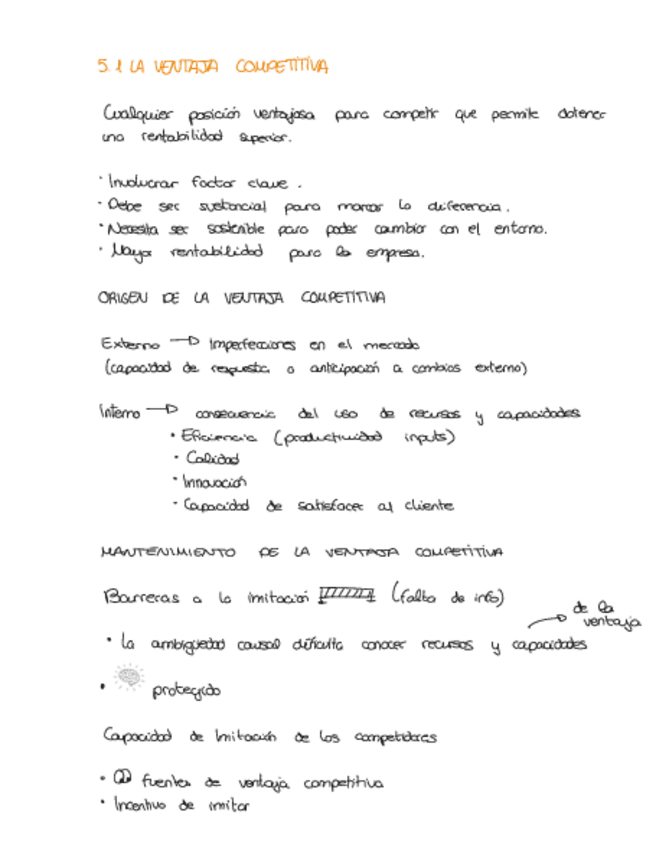 5.1 LA VENTAJA COMPETITIVA
Cualquier posición ventajosa para competir que permite obtener
una rentabilidad superior.
· Involucrar factor clave.
· Debe ser sustancial para marcar la diferencia.
· Necesita ser sostenible para poder cambiar con el entorno.
· Mayor rentabilidad para la empresa.
ORIGEN DE LA VENTAJA COMPETITIVA
Externo → Imperfecciones en el mercado
(capacidad de respuesta o anticipación a cambios externo)
Interno → consecuencia del uso de recursos y capacidades
· Eficiencia (productividad inputs)
· Calidad
· Innovación
· Capacidad de satisfacer al cliente
MANTENIMIENTO DE LA VENTAJA COMPETITIVA
Barreras a la imitación (falta de info)
de la
ventaja
· La ambigüedad causal dificulta conocer recursos y capacidades
· protegido
Capacidad de Imitación de los competidores
· fuentes de ventaja competitiva
· Incentivo de imitar